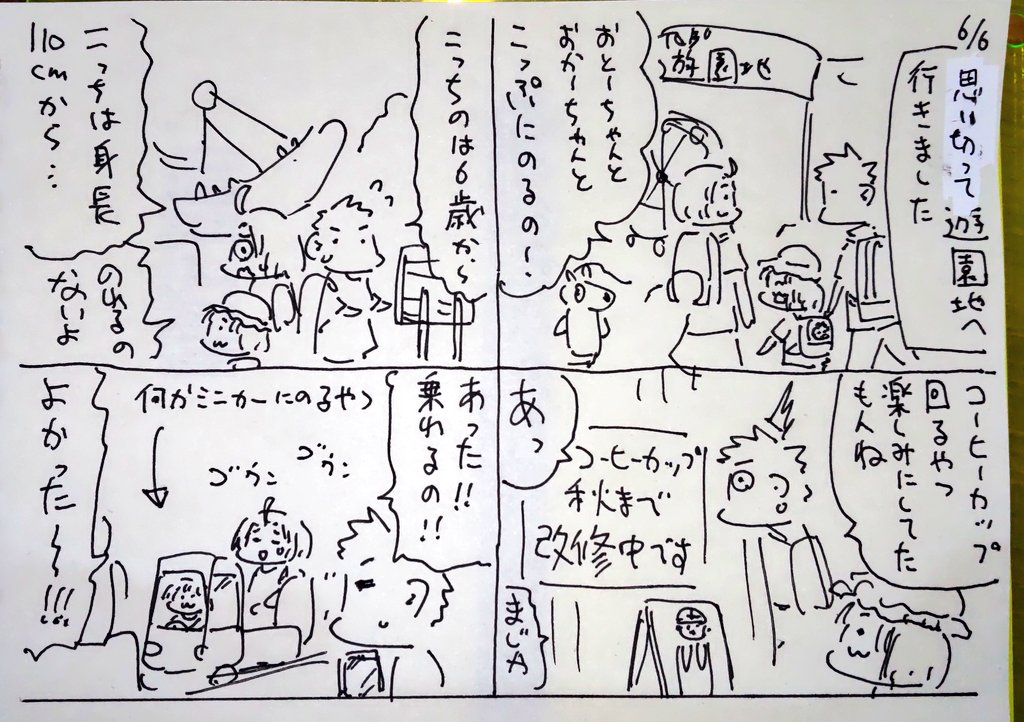 6/6
思い切って遊園地へ
行きました
遊園地
おとーちゃんと
おかーちゃんと
こっぷにのるの!
コーヒーカップ
回るやつ
楽しみにしてた
もんね
コーヒーカップ
秋まで
改修中です
あっ
まじか
こっちのは6歳から
こっちは身長
110cmから…
のれるの
ないよ
あった!!
乗れるの!!
何かミニカーにのるやつ
ゴウン
ゴウン
よかった〜〜!!!